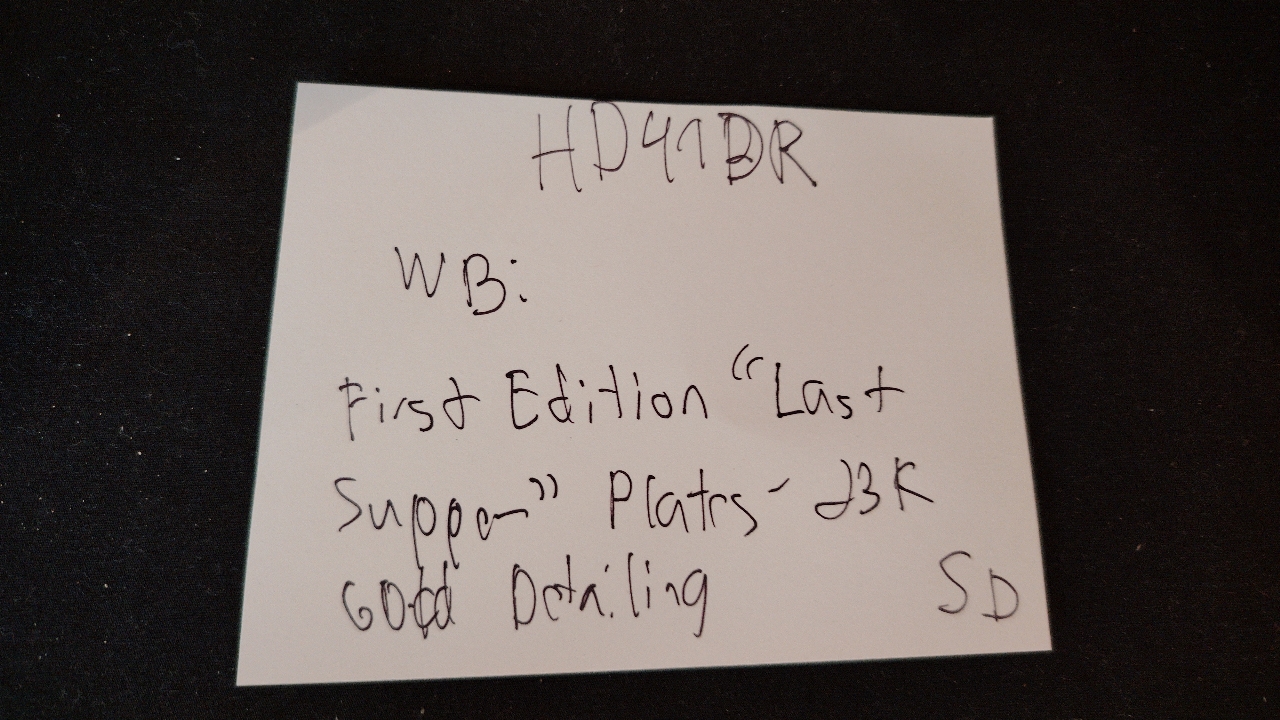 HD41BR
WB:
First Edition "Last
Supper" Plates - 23K
Gold Detailing
SD